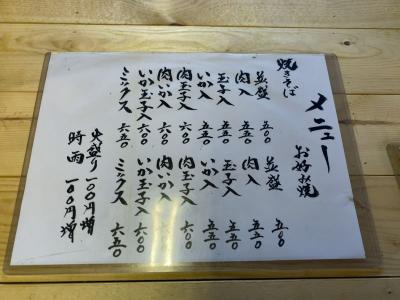 メニュー
焼きそば
並盛 五〇〇
肉入 五五〇
玉子入 五五〇
いか入 五五〇
肉玉子入 六〇〇
肉いか入 六〇〇
いか玉子入 六〇〇
ミックス 六五〇
お好み焼
並盛 五〇〇
肉入 五五〇
玉子入 五五〇
いか入 五五〇
肉玉子入 六〇〇
肉いか入
いか玉子入 六〇〇
ミックス 六五〇
大盛り 一〇〇円増
時雨 一〇〇円増